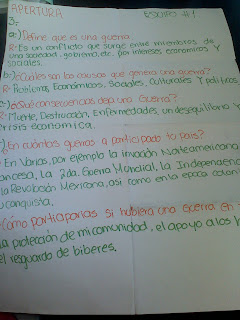 APERTURA
EQUIPO #1
3.-
a:) Define que es una guerra
R: Es un conflicto que surge entre miembros de
una sociedad, gobierno, etc. por intereses económicos y
sociales.
b:) ¿Cuáles son las causas que genera una guerra?
R: Políticas, Económicas, Sociales, Culturales y políticas
¿Qué consecuencias deja una Guerra?
R: Muerte, Destrucción, Enfermedades, un desequilibrio y
crisis económica.
¿En cuántas guerras a participado tu país?
En Varias, por ejemplo la invación Norteamericana,
ancesa, la 2da. Guerra Mundial, la Independenc
la Revolución Mexicana, así como en la época colon
conquista.
¿Cómo participarías si hubiera una Guerra en
la protección de mi comunidad, el apoyo a los
el resguardo de biberes.